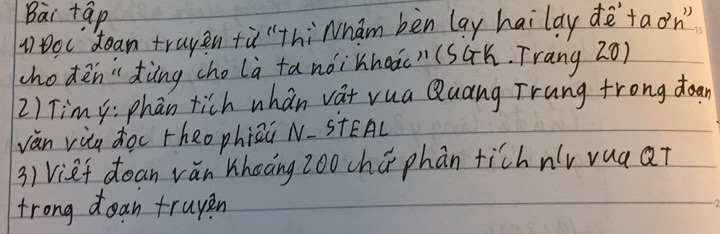 Bài tập
1) Đọc đoạn truyện từ "Thì Nhậm bèn lạy hai lạy để tạ ơn"
cho đến "đừng cho là ta nói khoác" (SGK. Trang 20)
2) Tìm ý: phân tích nhân vật vua Quang Trung trong đoạn
văn vừa đọc theo phiếu N_ STEAL
3) Viết đoạn văn khoảng 200 chữ phân tích n/v vua QT
trong đoạn truyện